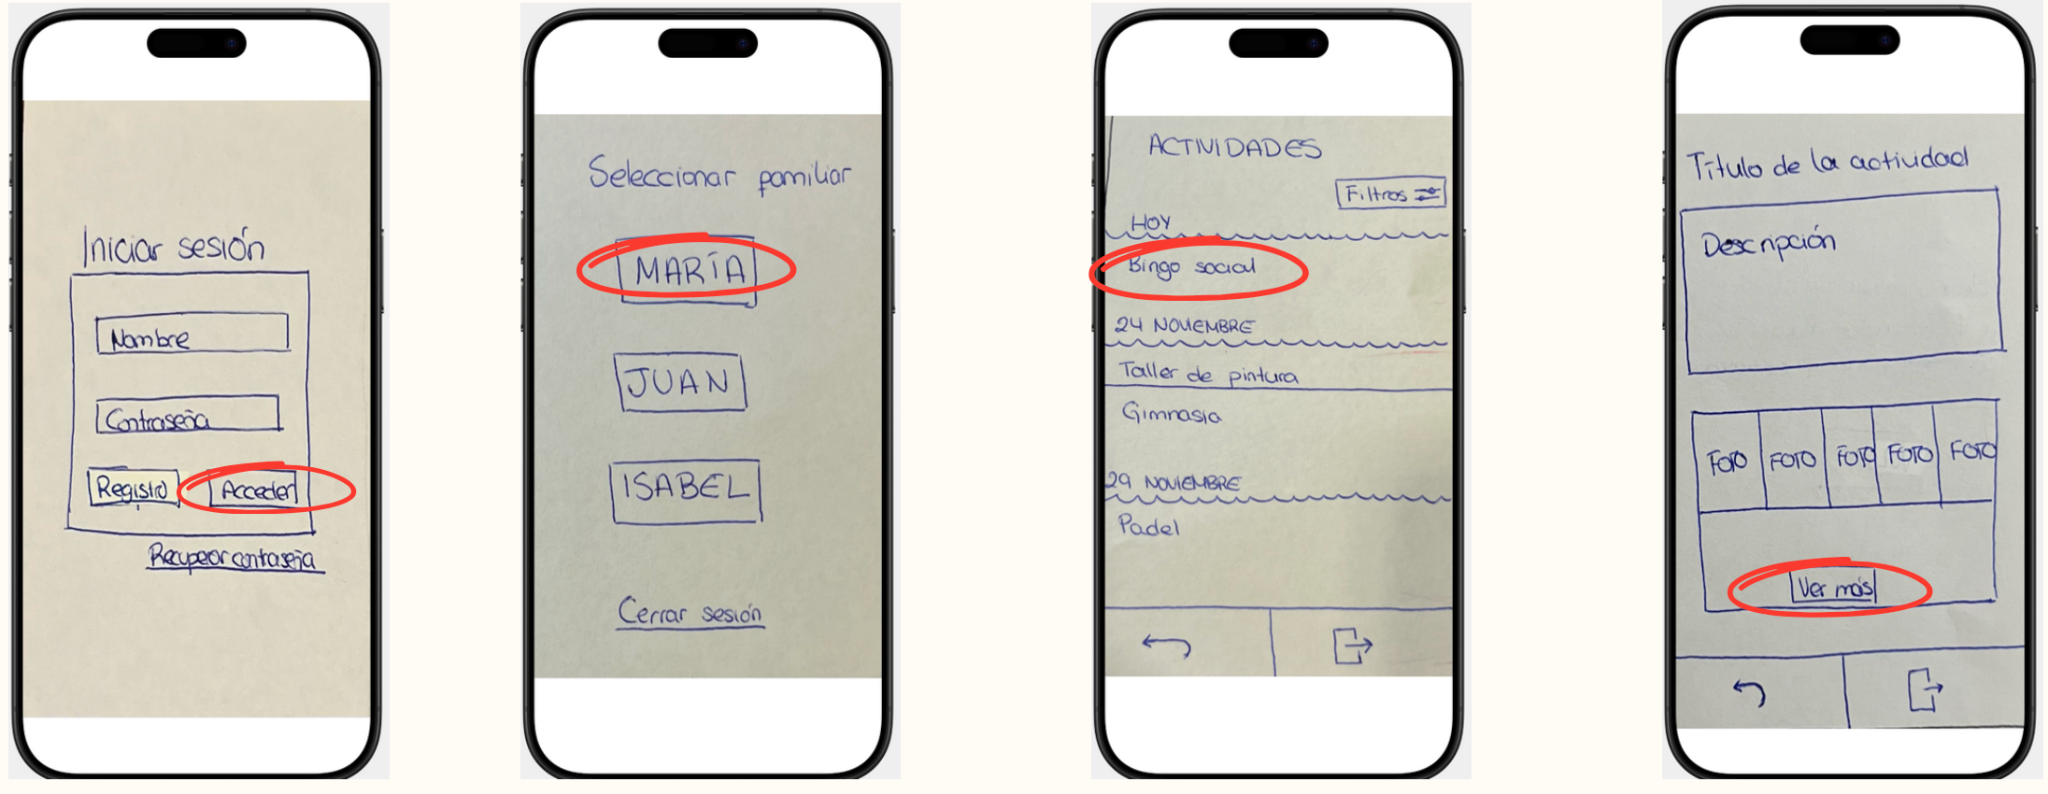 Iniciar sesión
Nombre
Contraseña
Registro
Acceder
Recuperar contraseña
Seleccionar familiar
MARÍA
JUAN
ISABEL
Cerrar sesión
ACTIVIDADES
Filtros
HOY
Bingo social
24 NOVIEMBRE
Taller de pintura
Gimnasia
29 NOVIEMBRE
Padel
Título de la actividad
Descripción
FOTO FOTO FOTO FOTO FOTO
Ver más